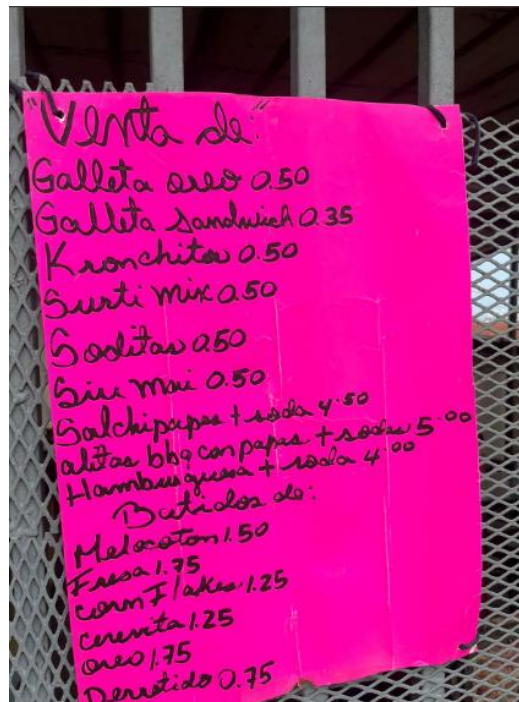 "Venta de"
Galleta oreo 0.50
Galleta Sandwich 0.35
Kronchitos 0.50
Surti Mix 0.50
Soditas 0.50
Siu Mai 0.50
Salchipapas + soda 4.50
alitas bbq con papas + sodas 5.00
Hamburguesa + soda 4.00
Batidos de:
Melocoton 1.50
Fresa 1.75
corn Flakes 1.25
cerevita 1.25
oreo 1.75
Derretido 0.75